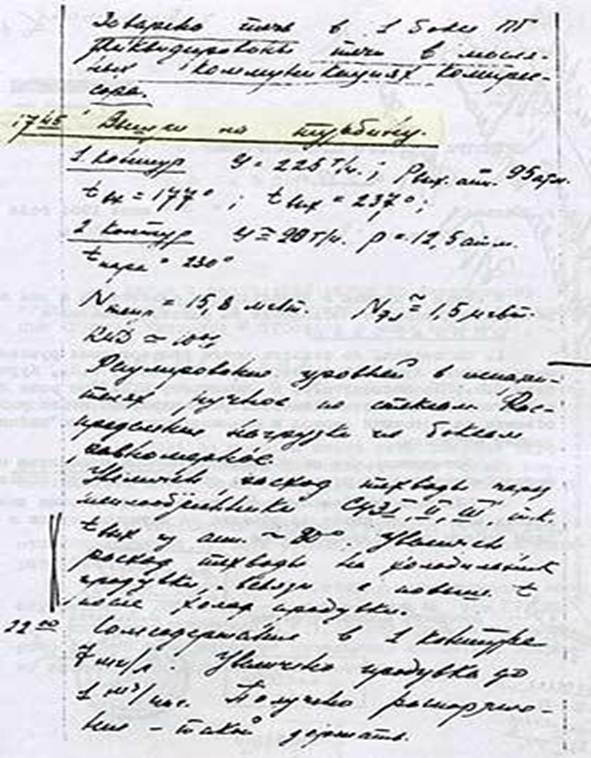 Заварена течь в 1 боксе ПГ
Ликвидированы течи в масля-
ных коммуникациях компрес-
сора.
17 45 Вышли на турбину.
1 контур G = 225 т/ч.; Pвых. ап. 95 атм.
t вх = 177° ; t вых = 237°;
2 контур G ≅ 20 т/ч. p = 12,5 атм.
t пара = 230°
N тепл = 15,8 мгвт. N эл ≅ 1,5 мгвт.
КПД ≈ 10%
Регулирование уровней в испари-
телях ручное по стеклам. Рас-
пределение нагрузки по боксам
равномерное
Увеличен расход техводы через
теплообменники СУЗ I, II, III т.к.
t вых из ап. ~ 80°. Увеличен
расход техводы на холодильник
продувки, в связи с повыш. t
после холод. продувки.
22 00 Солесодержание в 1 контуре
7 мг/л. Увеличена продувка до
1 м³/час. Получено распоряже-
ние – такой держать.